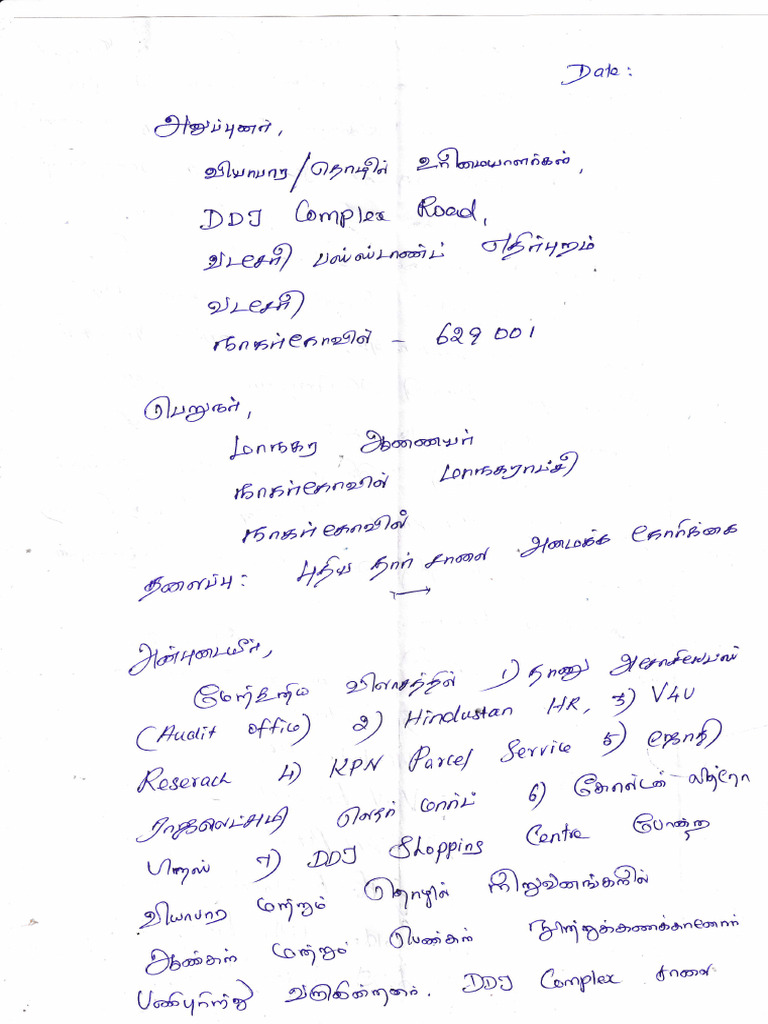 Date:
அனுப்புனர்,
வியாபார/தொழில் உரிமையாளர்கள்,
DDJ Complex Road,
வடசேரி பஸ்ஸ்டாண்ட் எதிர்புறம்
வடசேரி
நாகர்கோவில் - 629 001
பெறுநர்,
மாநகர ஆணையர்
நாகர்கோவில் மாநகராட்சி
நாகர்கோவில்
தலைப்பு: புதிய தார் சாலை அமைக்க கோரிக்கை
அன்புடையீர்,
மேற்கூறிய விலாசத்தில் 1) தாணு
(Audit Office) 2) Hindustan HR, 3) V4U
Reserach 4) KPN Parcel Service 5) ஜோதி
ராஜலெட்சுமி லெதர் மார்ட் 6) கோல்டன்
7) DDJ Shopping Centre போன்ற
வியாபார மற்றும் தொழில் நிறுவனங்களில்
ஆண்கள் மற்றும் பெண்கள் நூற்றுக்கணக்கானோர்
பணிபுரிந்து வருகின்றனர். DDJ Complex சாலை